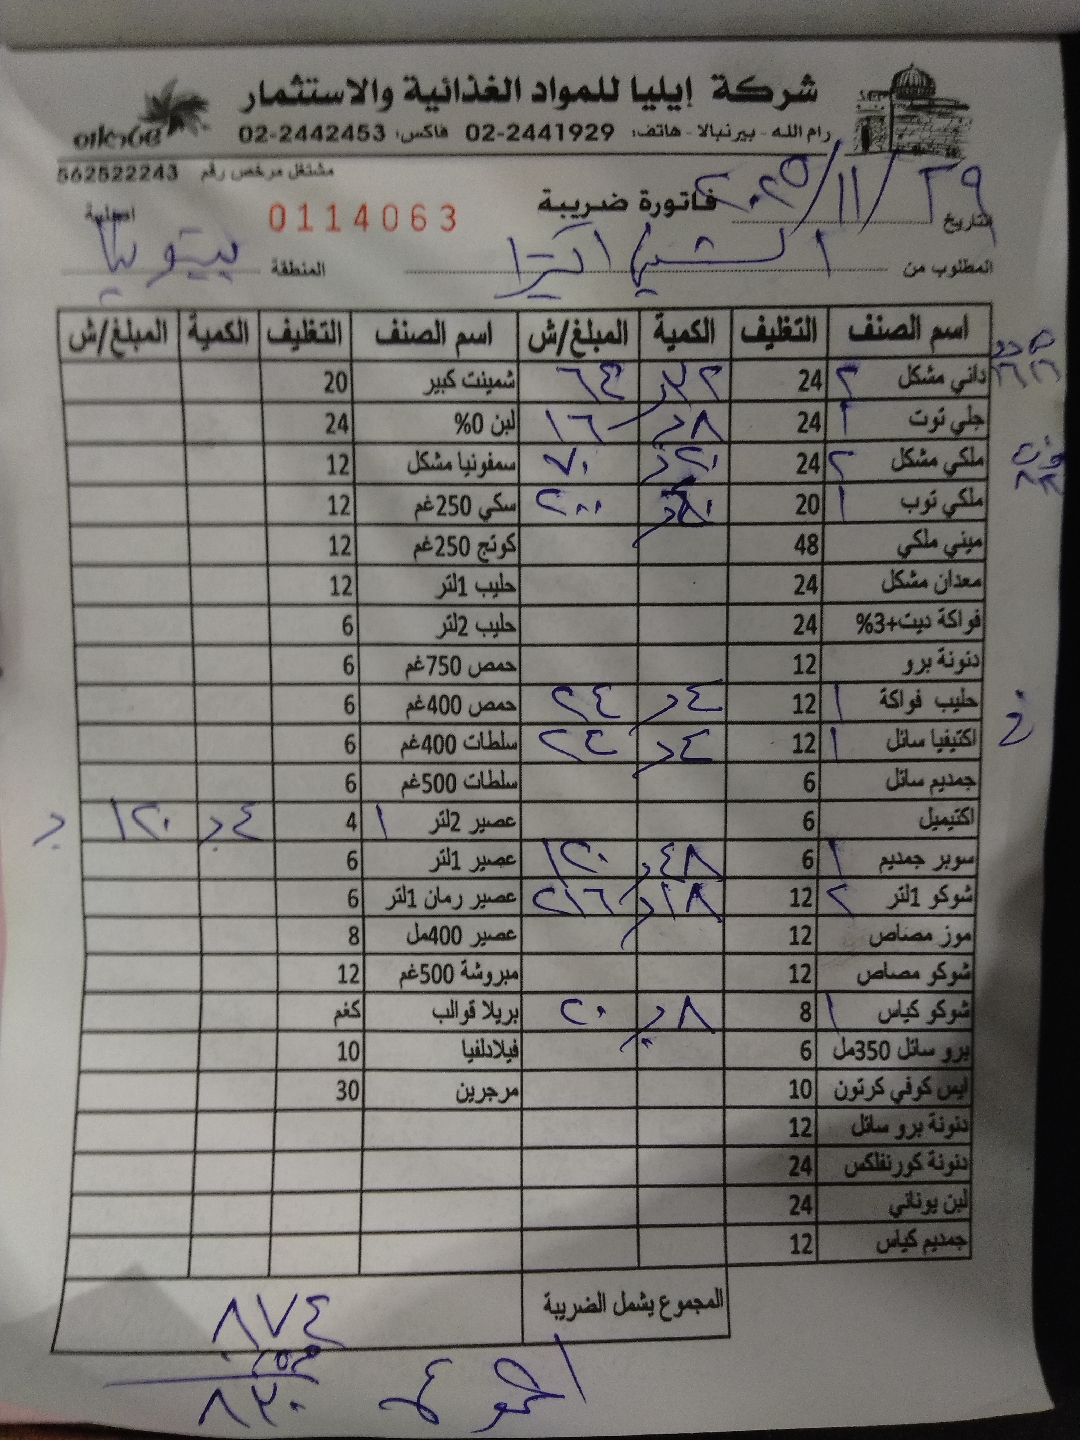 شركة إيليا للمواد الغذائية والاستثمار
رام الله - بيرنبالا - هاتف: 02-2441929 فاكس: 02-2442453
مشتغل مرخص رقم 562522243
فاتورة ضريبة
0114063
اصلية
التاريخ ٢٩/١١/٢٠٢٥
المطلوب من
المنطقة بيتونيا
اسم الصنف التغليف الكمية المبلغ/ش اسم الصنف التغليف الكمية المبلغ/ش
داني مشكل ٢ 24 ٦٤ شمينت كبير 20
جلي توت ١ 24 ١٦ لبن 0% 24
ملكي مشكل ٢ 24 ٧٠ سمفونيا مشكل 12
ملكي توب ١ 20 ٢٠٠ سكي 250غم 12
ميني ملكي 48 كوتج 250غم 12
معدان مشكل 24 حليب 1لتر 12
فواكة ديت+3% 24 حليب 2لتر 6
دنونة برو 12 حمص 750غم 6
حليب فواكة ١ 12 ٢٤ حمص 400غم 6
اكتيفيا سائل ١ 12 ٢٤ سلطات 400غم 6
جمديم سائل 6 سلطات 500غم 6
اكتيميل 6 عصير 2لتر ١ 4 ١٢٠
سوبر جمديم ١ 6 ١٢٠ عصير 1لتر 6
شوكو 1لتر ٢ 12 ٢١٦ عصير رمان 1لتر 6
موز مصاص 12 عصير 400مل 8
شوكو مصاص 12 مبروشة 500غم 12
شوكو كياس ١ 8 ٢٠ بريلا قوالب كغم
برو سائل 350مل 6 فيلادلفيا 10
ايس كوفي كرتون 10 مرجرين 30
دنونة برو سائل 12
دنونة كورنفلكس 24
لبن يوناني 24
جمديم كياس 12
المجموع يشمل الضريبة ٨٧٤
٨٣٠